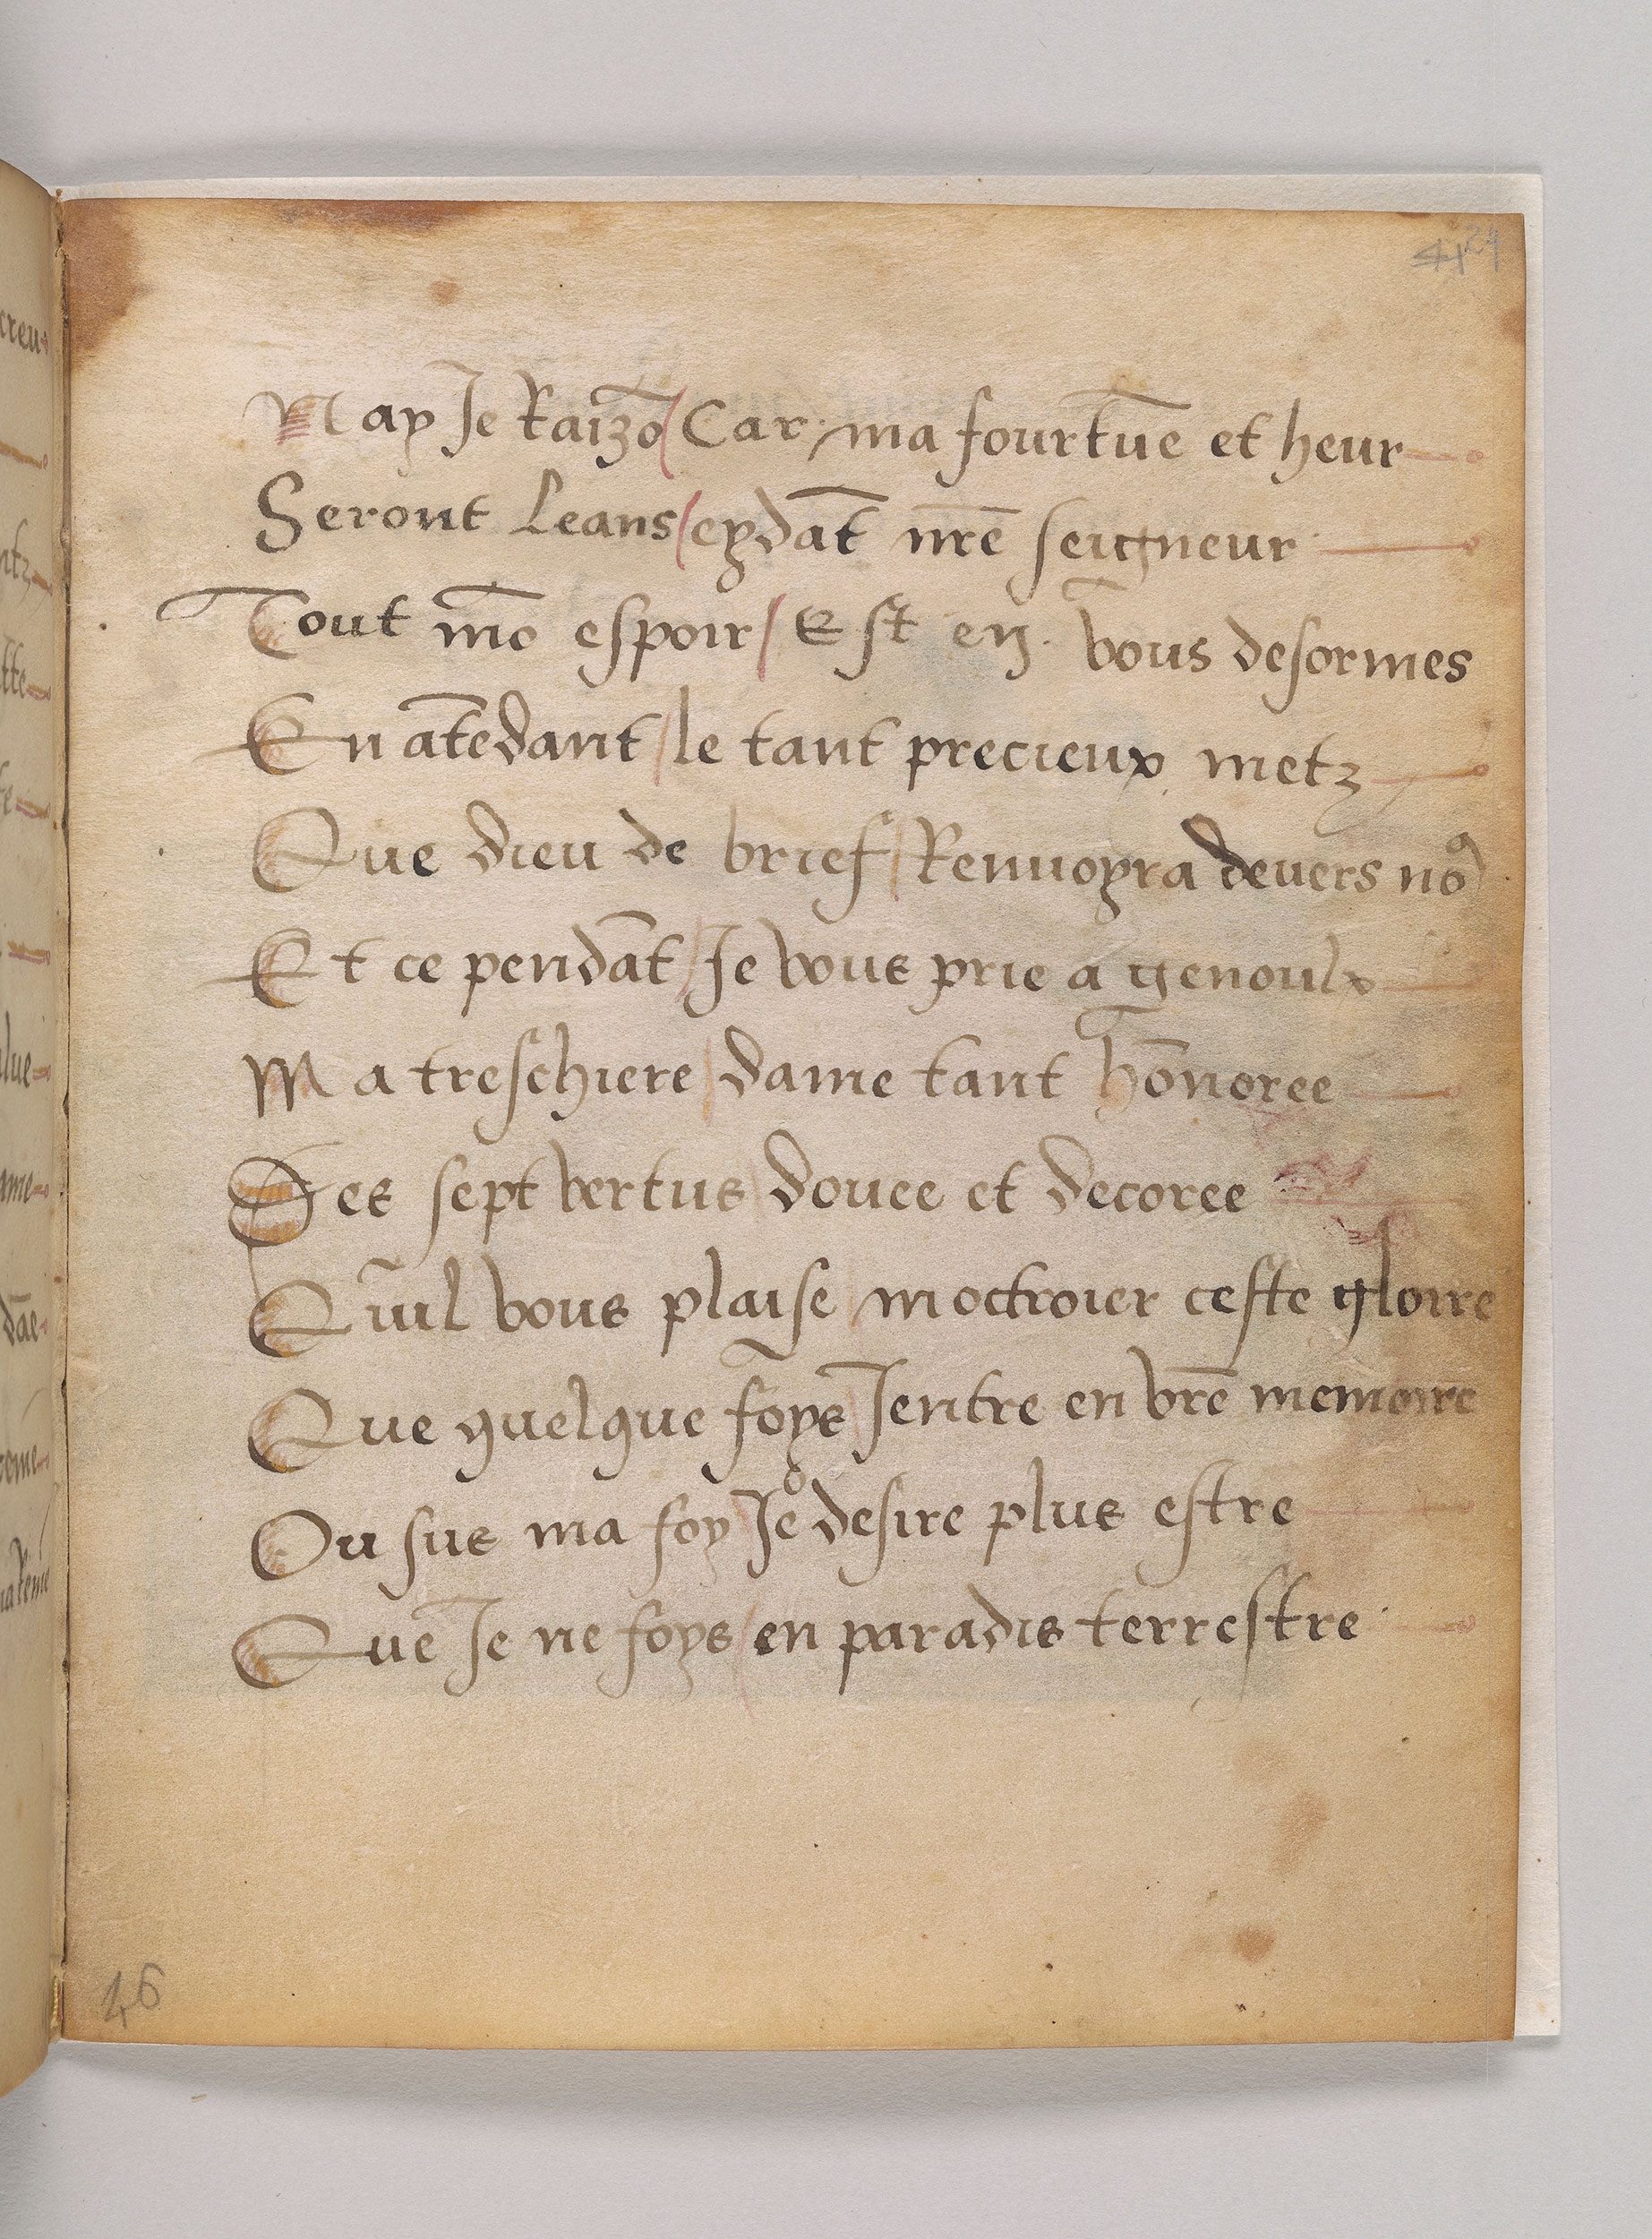 4124
Nay Je Raizõ / Car ma fourtũe et heur
Seront Leans / eydãt nr̃e seigneur
Tout mõ espoir / Est en vous desormes
En atẽdant / le tant precieux metz
Que dieu de brief / Renuoyra deuers noꝰ
Et ce pendãt / Je vous prie a genoulx
Ma treschiere / dame tant hõnoree
Des sept vertus / douee et decoree
Quil vous plaise / moctroier ceste gloire
Que quelque foys / Jentre en vr̃e memoire
Ou sus ma foy / Je desire plus estre
Que Je ne foys / en paradis terrestre
46
creu
ntz
tte
lue
ame
dãe